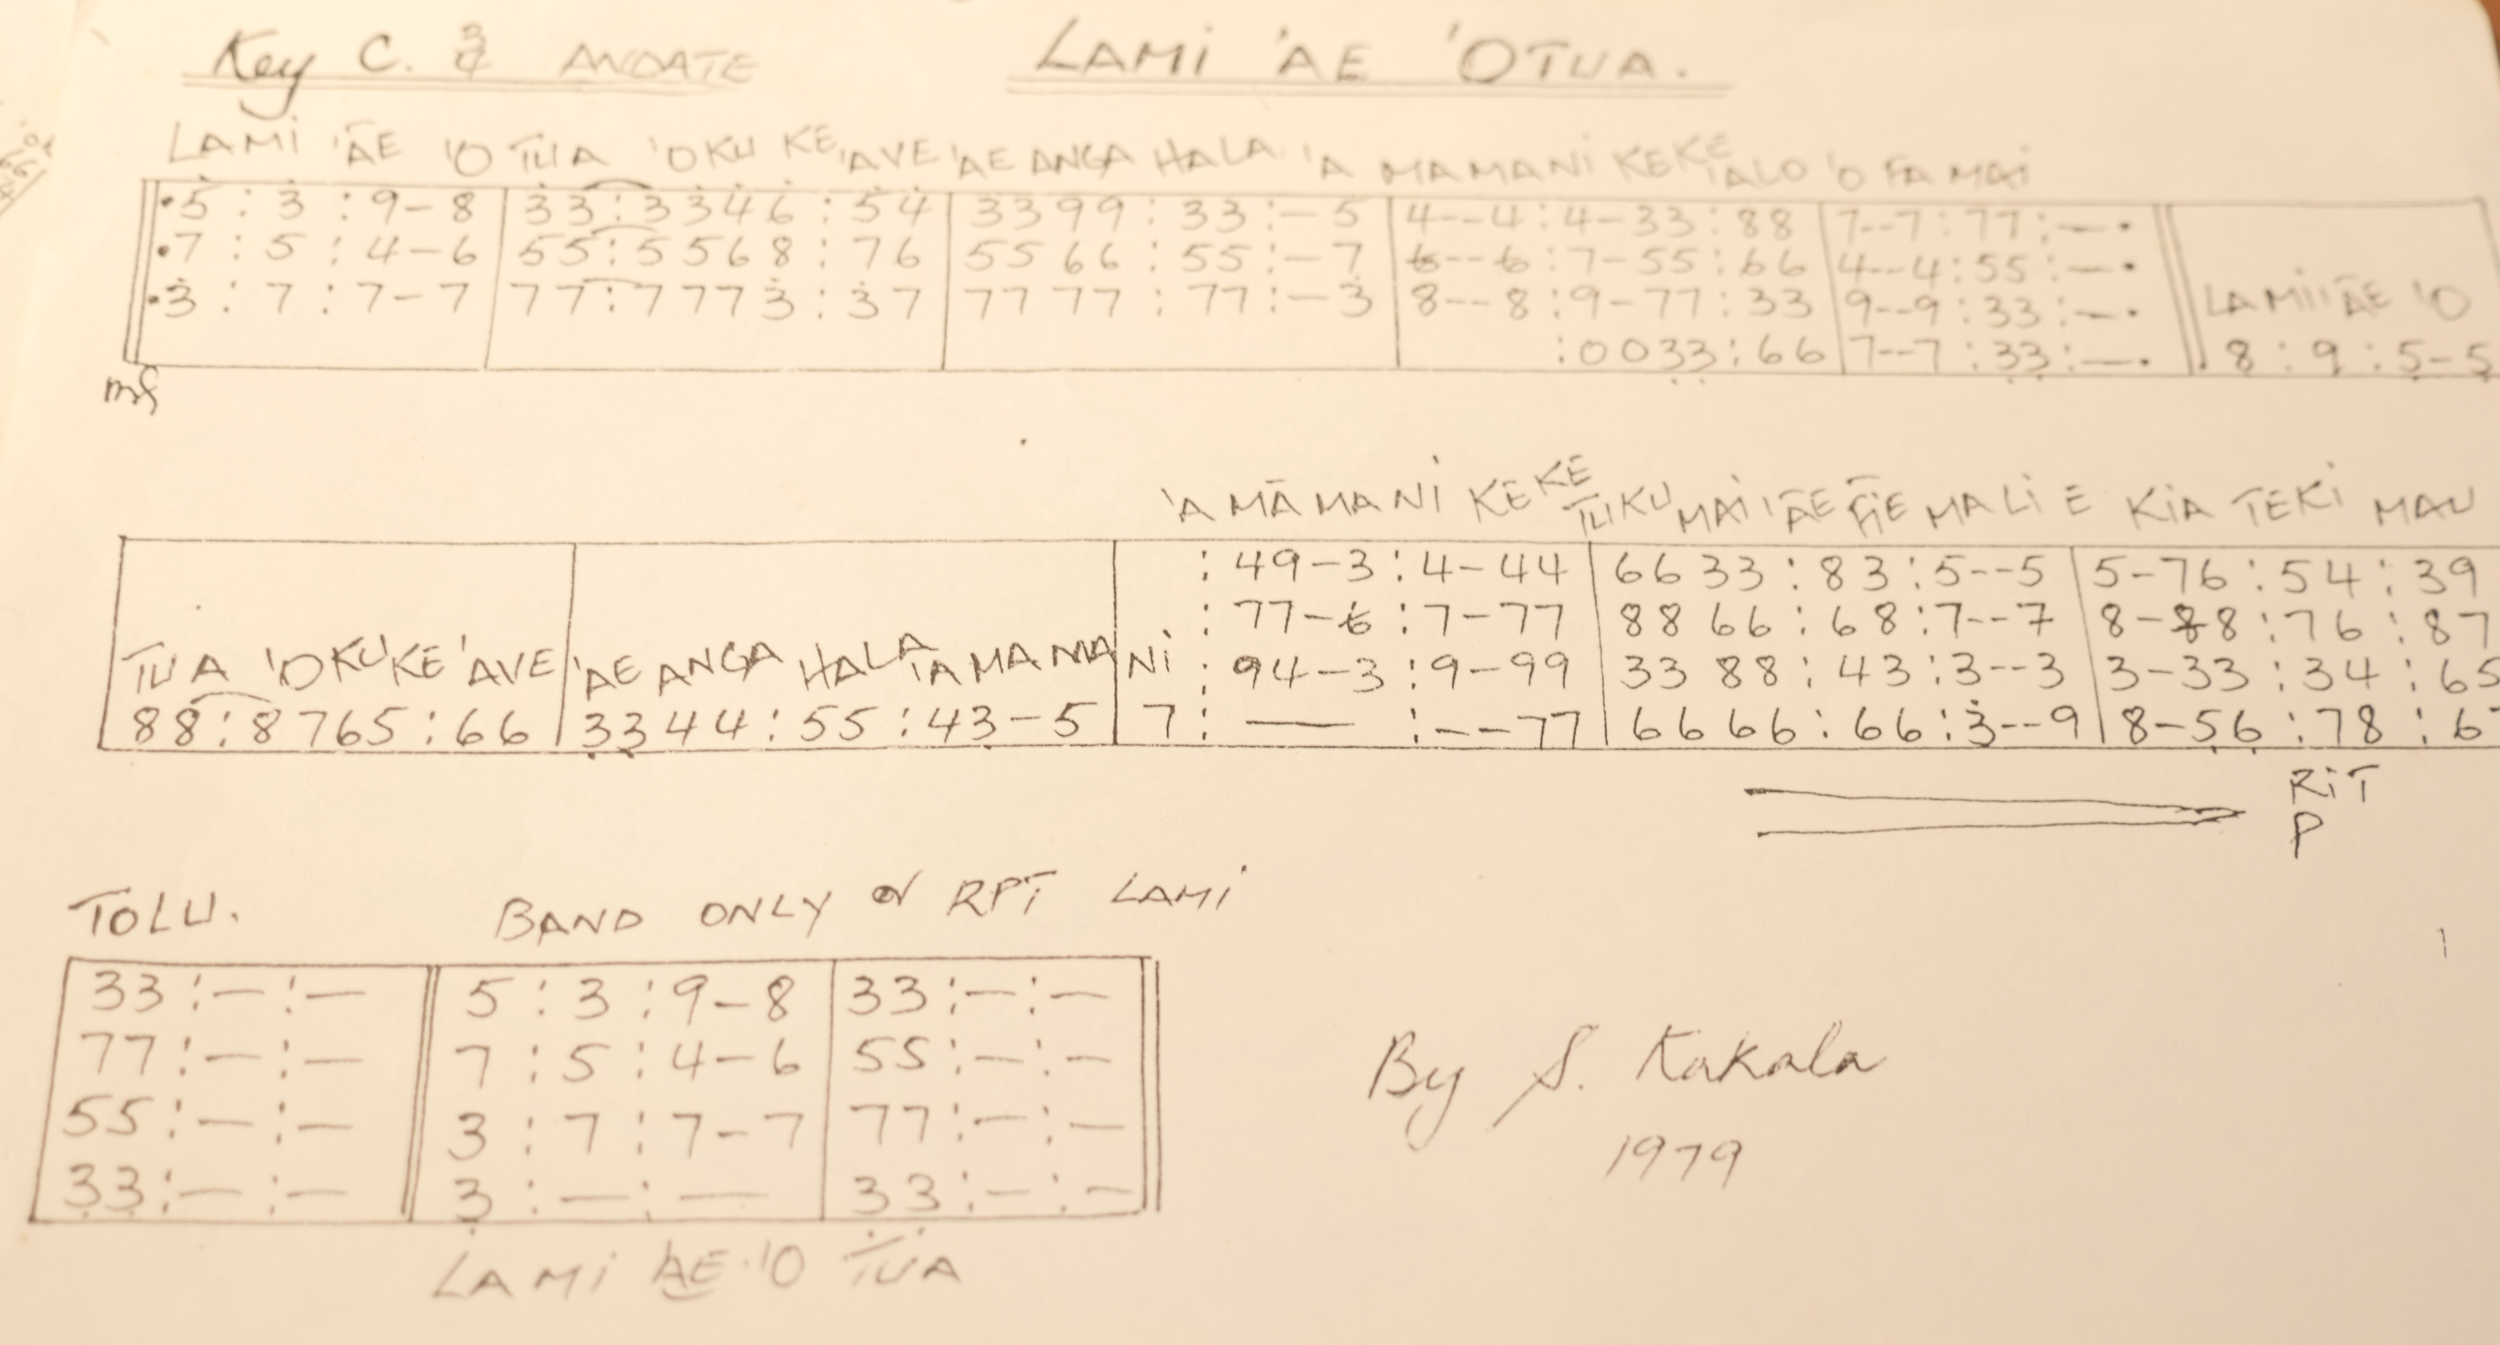 Key C. 3/4 ANDATE LAMI 'AE 'OTUA.
LAMI 'ĀE 'O TUA 'OKU KE 'AVE 'AE ANGA HALA 'A MA MANI KEKE 'ALO 'OFA MAI
•5 : 3 : 9-8 | 33:3346 : 54 | 3399 : 33 : -5 | 4--4 : 4-33 : 88 | 7--7 : 77 : -•
•7 : 5 : 4-6 | 55:5568 : 76 | 5566 : 55 : -7 | 6--6 : 7-55 : 66 | 4--4 : 55 : -•
•3 : 7 : 7-7 | 77:7773 : 37 | 7777 : 77 : -3 | 8---8 : 9-77 : 33 | 9--9 : 33 : -• LAMI 'ĀE 'O
:0033 : 66 | 7--7 : 33 : -• 8 : 9 : 5-5
mf
'A MĀMANI KEKE TUKU MAI 'ĀE FIE MALIE KIA TEKI MAU
: 49-3 : 4-44 | 6633 : 83 : 5--5 | 5-76 : 54 : 39
: 77-6 : 7-77 | 8866 : 68 : 7--7 | 8-88 : 76 : 87
TUA 'OKU KE 'AVE 'AE ANGA HALA 'A MA MA NI : 94-3 : 9-99 | 3388 : 43 : 3--3 | 3-33 : 34 : 65
88:8765 : 66 | 3344 : 55 : 43-5 | 7 : — : --77 | 6666 : 66 : 3--9 | 8-56 : 78 : 6
RIT
P
TOLU. BAND ONLY or RPT LAMI
33 : — : — | 5 : 3 : 9-8 | 33 : — : —
77 : — : — | 7 : 5 : 4-6 | 55 : — : —
55 : — : — | 3 : 7 : 7-7 | 77 : — : —
33 : — : — | 3 : — : — | 33 : — : —
LAMI ĀE 'O TUA
By S. Kakala
1979